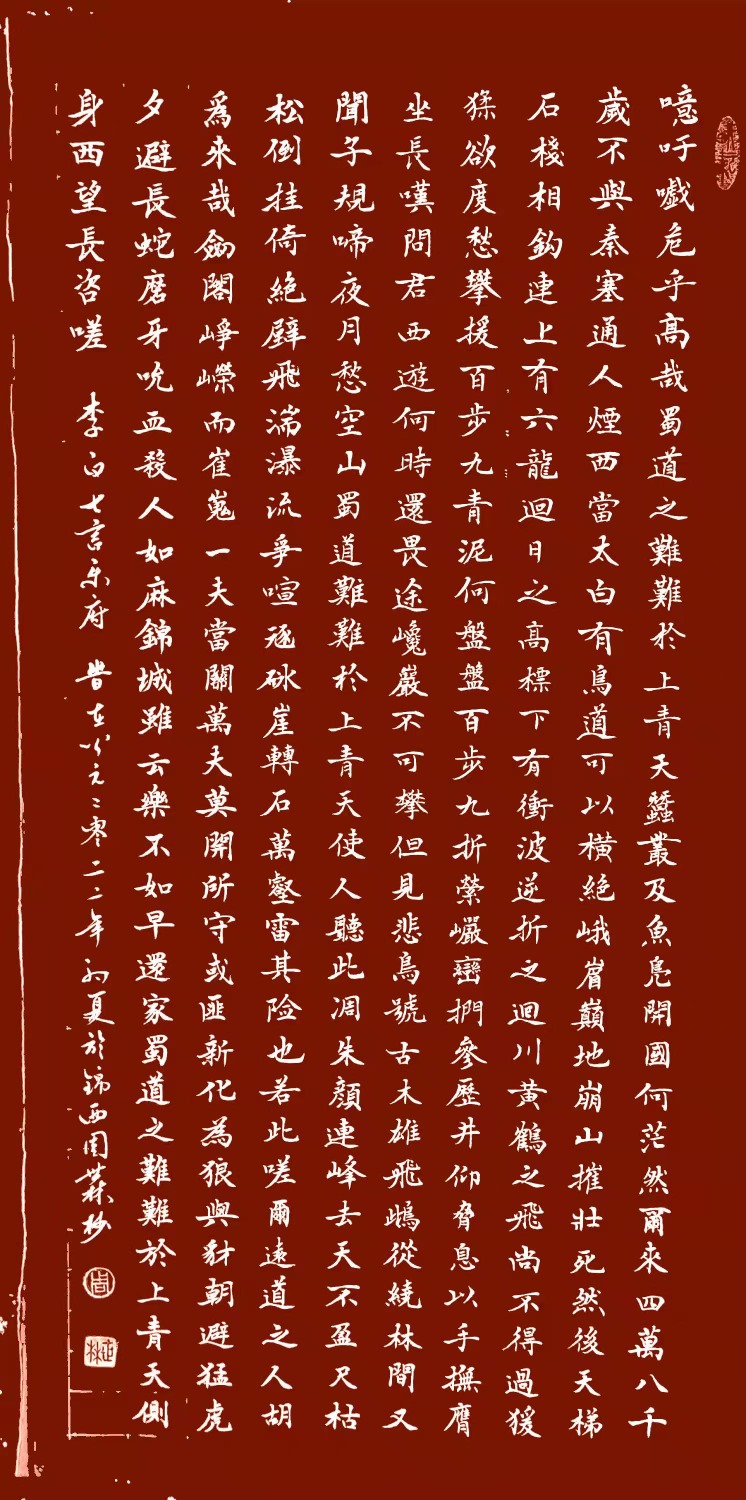 噫吁嚱危乎高哉蜀道之難難於上青天蠶叢及魚鳧開國何茫然爾來四萬八千
歲不與秦塞通人煙西當太白有鳥道可以橫絕峨眉巔地崩山摧壯死然後天梯
石棧相鈎連上有六龍迴日之高標下有衝波逆折之迴川黃鶴之飛尚不得過猨
猱欲度愁攀援百步九青泥何盤盤百步九折縈巖巒捫參歷井仰脅息以手撫膺
坐長嘆問君西遊何時還畏途巉巖不可攀但見悲鳥號古木雄飛雌從繞林間又
聞子規啼夜月愁空山蜀道難難於上青天使人聽此凋朱顏連峰去天不盈尺枯
松倒挂倚絕壁飛湍瀑流爭喧豗砯崖轉石萬壑雷其险也若此嗟爾遠道之人胡
爲來哉劍閣崢嶸而崔嵬一夫當關萬夫莫開所守或匪新化為狼與豺朝避猛虎
夕避長蛇磨牙吮血殺人如麻錦城雖云樂不如早還家蜀道之難難於上青天側
身西望長咨嗟 李白七言樂府 在公元二零二二年初夏於錦西周抄